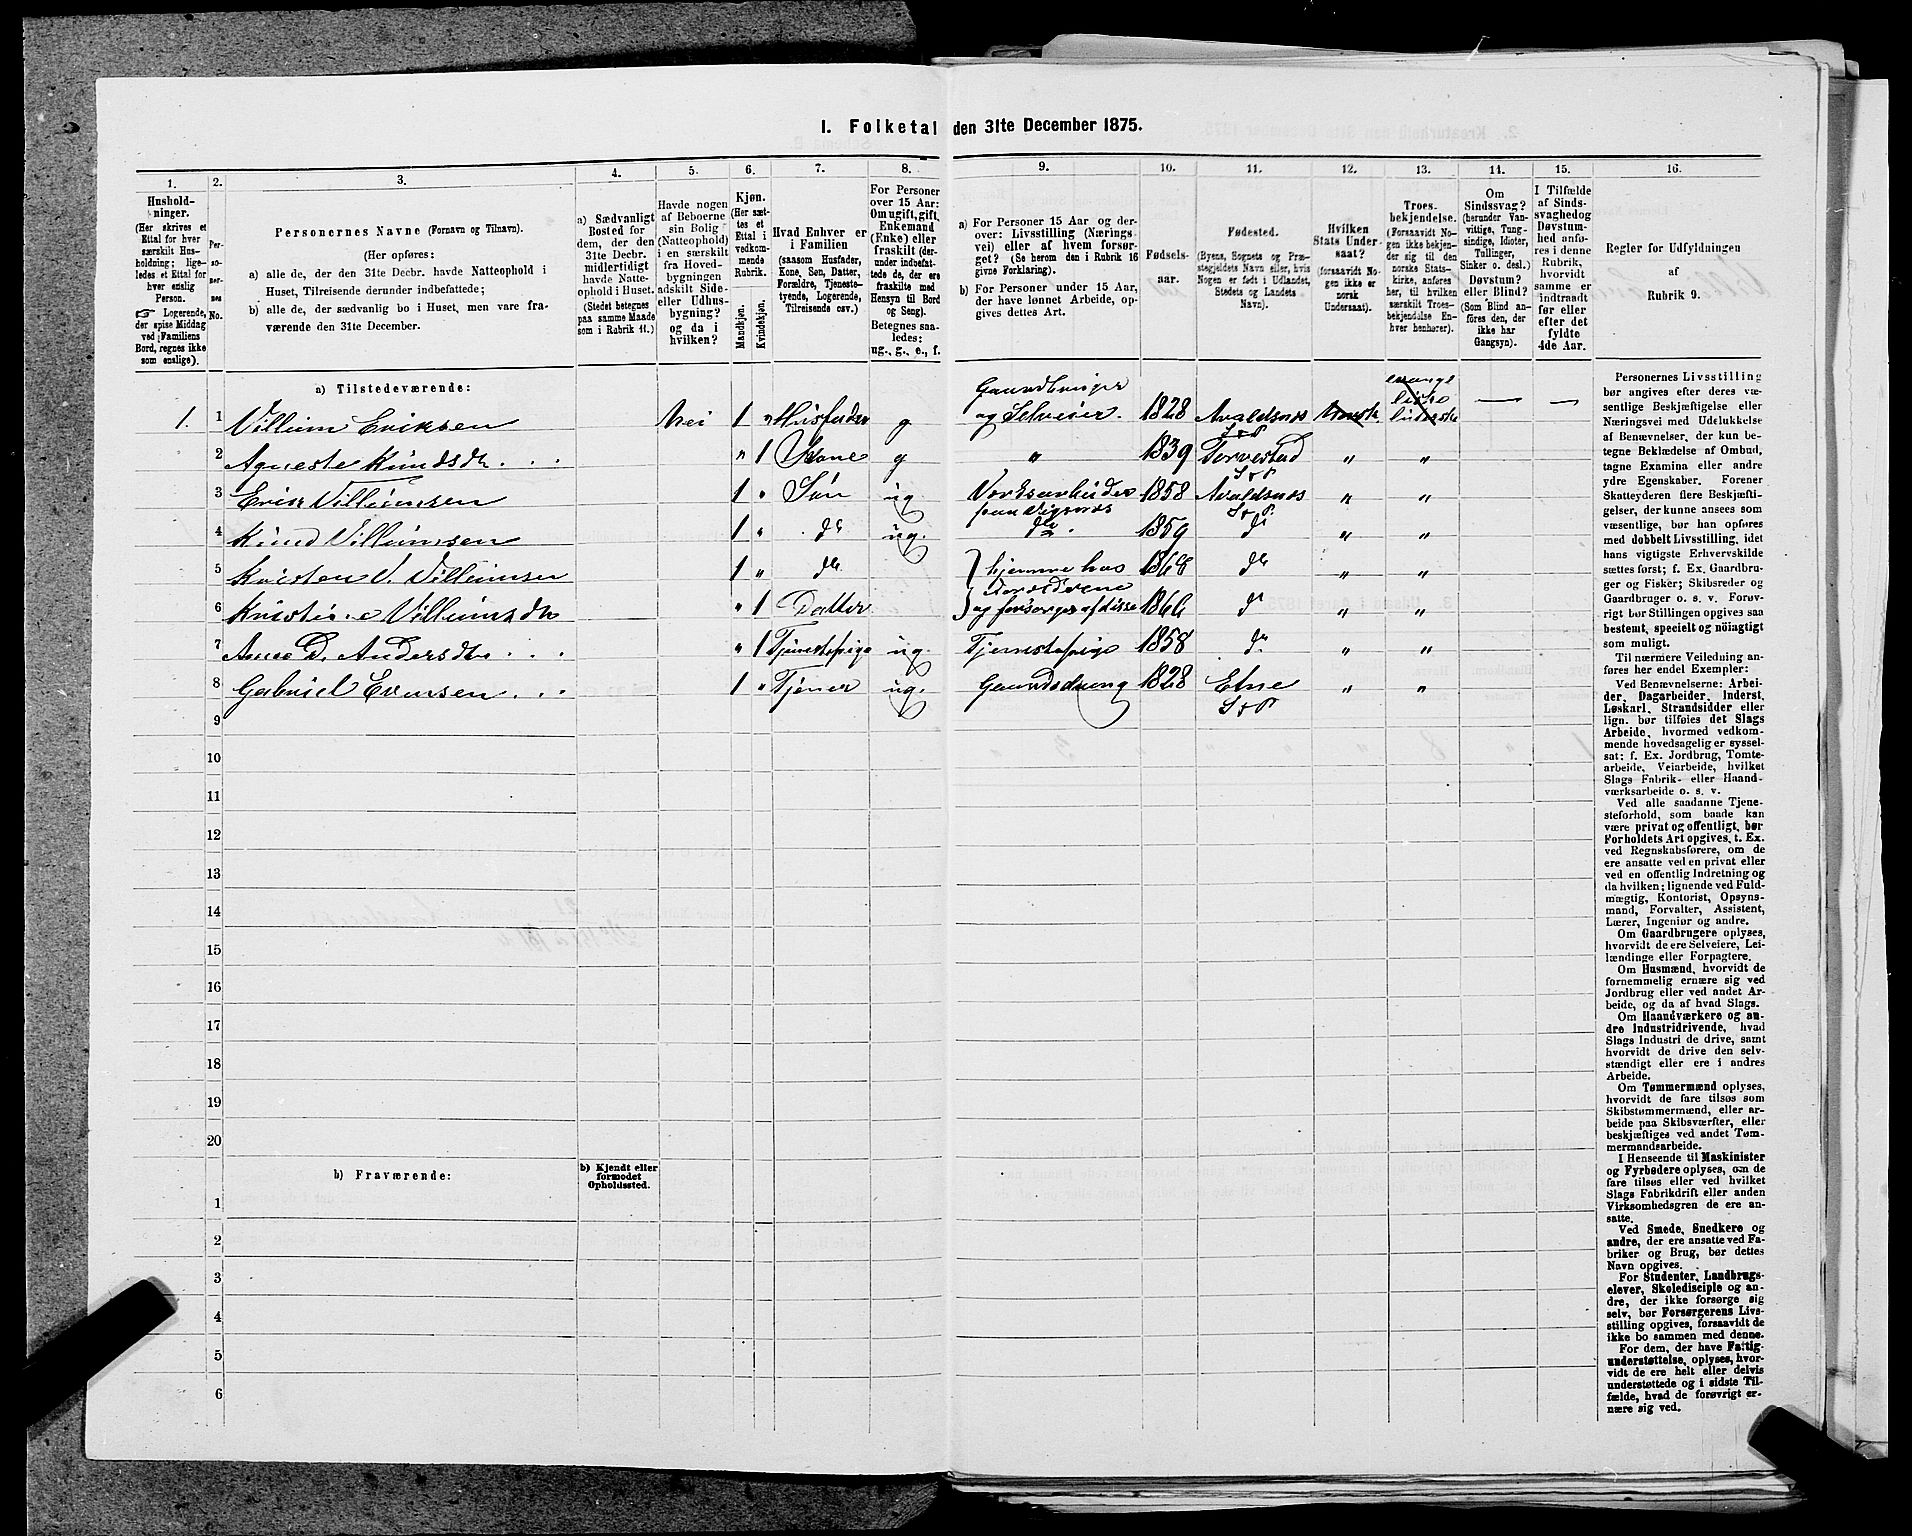 1. Folketal den 31te December 1875.
1. 2. 3. 4. 5. 6. 7. 8. 9. 10. 11. 12. 13. 14. 15. 16.
Hushold-
ninger.
(Her skrives et
Ettal for hver
særskilt Hus-
holdning; lige-
ledes et Ettal for
hver enslig
Person.
☞ Logerende,
der spise Middag
ved Familiens
Bord, regnes ikke
som enslige).
Per-
soner-
nes
No.
Personernes Navne (Fornavn og Tilnavn).
(Her opføres:
a) alle de, der den 31te Decbr. havde Natteophold i
Huset, Tilreisende derunder indbefattede;
b) alle de, der sædvanlig bo i Huset, men vare fra-
værende den 31te December.
a) Sædvanligt
Bosted for
dem, der den
31te Decbr.
midlertidigt
havde Natte-
ophold i Huset.
(Stedet betegnes
paa samme Maade
som i Rubrik 11.)
Havde nogen
af Beboerne
sin Bolig
(Natteophold)
i en særskilt
fra Hoved-
bygningen
adskilt Side-
eller Udhus-
bygning?
og da i
hvilken?
Kjøn.
(Her sæt-
tes et
Ettal i
vedkom-
mende
Rubrik.
Mandkjøn.
Kvindekjøn.
Hvad Enhver er
i Familien
(saasom Husfader,
Kone, Søn, Datter,
Forældre, Tjeneste-
tyende, Logerende,
Tilreisende osv.)
For Personer
over 15 Aar:
Om ugift, gift,
Enkemand
(Enke) eller
fraskilt (der-
under indbefat-
tede de, der ere
fraskilte med
Hensyn til Bord
og Seng).
Betegnes saa-
ledes:
ug., g., e., f.
a) For Personer 15 Aar og der-
over: Livsstilling (Nærings-
vei) eller af hvem forsør-
get? (Se herom den i Rubrik 16
givne Forklaring).
b) For Personer under 15 Aar,
der have lønnet Arbeide, op-
gives dettes Art.
Fødsels-
aar.
Fødested.
(Byens, Sognets og Præ-
stegjeldets Navn eller, hvis
Nogen er født i Udlandet,
Stedets og Landets
Navn).
Hvilken
Stats Under-
saat?
(forsaavidt No-
gen ikke er
norsk
Undersaat).
Troes-
bekjendelse.
(Forsaavidt No-
gen ikke bekjen-
der sig til den
norske Stats-
kirke, anføres
her, til hvilken
særskilt Troes-
bekjendelse En-
hver henhører).
Om
Sindssvag?
(herunder Van-
vittige, Tung-
sindige, Idioter,
Tullinger,
Sinker o. desl.)
Døvstum?
eller Blind?
(Som Blind an-
føres den, der
ikke har
Gangsyn).
I Tilfælde
af Sinds-
svaghed og
Døvstum-
hed anfø-
res i denne
Rubrik,
hvorvidt
samme er
indtraadt
før eller
efter det
fyldte
4de Aar.
Regler for Udfyldningen
af
Rubrik 9.
a) Tilstedeværende:
1. 1 Villum Eriksen Nei 1 " Husfader g Gaardbruger og Selveier. 1828 Avaldsnes S & P Norsk. evangelisk luterske — —
2 Agneste Knudsdtr. . . " 1 Kone g " 1839 Torvestad S & P " "
3 Erik Villumsen 1 " Søn ug. Verksarbeider paa Vigsnes 1858 Avaldsnes S & P. " "
4 Knud Villumsen 1 " do ug. do. 1859 do " "
5 Kristen V. Villumsen 1 " do } hjemme hos Forældrene 1868 do " "
6 Kristine Villumsdtr " 1 Datter og forsørges af disse 1866 do " "
7 Anne D. Andersdtr. . . " 1 Tjenestepige ug. Tjenestepige 1858 do " "
8 Gabriel Evensen . . . 1 " Tjener ug. Gaardsdreng 1828 Etne S & P " "
9
10
11
12
13
14
15
16
17
18
19
20
b) Fraværende:
b) Kjendt eller
formodet
Opholdssted.
1
2
3
4
5
6
Personernes Livsstilling
bør angives efter deres væ-
sentlige Beskjæftigelse eller
Næringsvei med Udelukkelse
af Benævnelser, der kun be-
tegne Beklædelse af Ombud,
tagne Examina eller andre
ydre Egenskaber. Forener
Skatteyderen flere Beskjæfti-
gelser, der kunne ansees som
væsentlige, bør han opføres
med dobbelt Livsstilling, idet
hans vigtigste Erhvervskilde
sættes først; f. Ex. Gaardbru-
ger og Fisker; Skibsreder og
Gaardbruger o. s. v. Forøv-
rigt bør Stillingen opgives saa
bestemt, specielt og nöiagtigt
som muligt.
Til nærmere Veiledning an-
føres her endel Exempler:
Ved Benævnelserne: Arbei-
der, Dagarbeider, Inderst,
Løskarl, Strandsidder eller
lign. bør tilføies det Slags
Arbeide, hvormed vedkom-
mende hovedsagelig er syssel-
sat; f. Ex. Jordbrug, Tomte-
arbeide, Veiarbeide, hvilket
Slags Fabrik- eller Haand-
værksarbeide o. s. v.
Ved alle saadanne Tjene-
steforhold, som baade kan
være privat og offentligt, bør
Forholdets Art opgives, t. Ex.
ved Regnskabsførere, om de
ere ansatte ved en privat eller
ved en offentlig Indretning og
da hvilken; lignende ved Fuld-
mægtig, Kontorist, Opsyns-
mand, Forvalter, Assistent,
Lærer, Ingeniør og andre.
Om Gaardbrugere oplyses,
hvorvidt de ere Selveiere, Lei-
lændinge eller Forpagtere.
Om Husmænd, hvorvidt de
fornemmelig ernære sig ved
Jordbrug eller ved andet Ar-
beide, og da af hvad Slags.
Om Haandværkere og an-
dre Industridrivende, hvad
Slags Industri de drive, samt
hvorvidt de drive den selv-
stændigt eller ere i andres
Arbeide.
Om Tømmermænd oplyses,
hvorvidt de fare tilsøs som
Skibstømmermænd, eller ar-
beide paa Skibsværfter, eller
beskjæftiges ved andet Tøm-
mermandsarbeide.
I Henseende til Maskinister
og Fyrbødere oplyses, om de
fare tilsøs eller ved hvilket
Slags Fabrikdrift eller anden
Virksomhedsgren de ere an-
satte.
Ved Smede, Snedkere og
andre, der ere ansatte ved Fa-
briker og Brug, bør dettes
Navn opgives.
For Studenter, Landbrugs-
elever, Skoledisciple og an-
dre, der ikke forsørge sig
selv, bør Forsørgerens Livs-
stilling opgives, forsaavidt de
ikke bo sammen med denne.
For dem, der have Fattig-
understøttelse, oplyses, hvor-
vidt de ere helt eller delvis
understøttede og i sidste Til-
fælde, hvad de forøvrigt er-
nære sig ved.